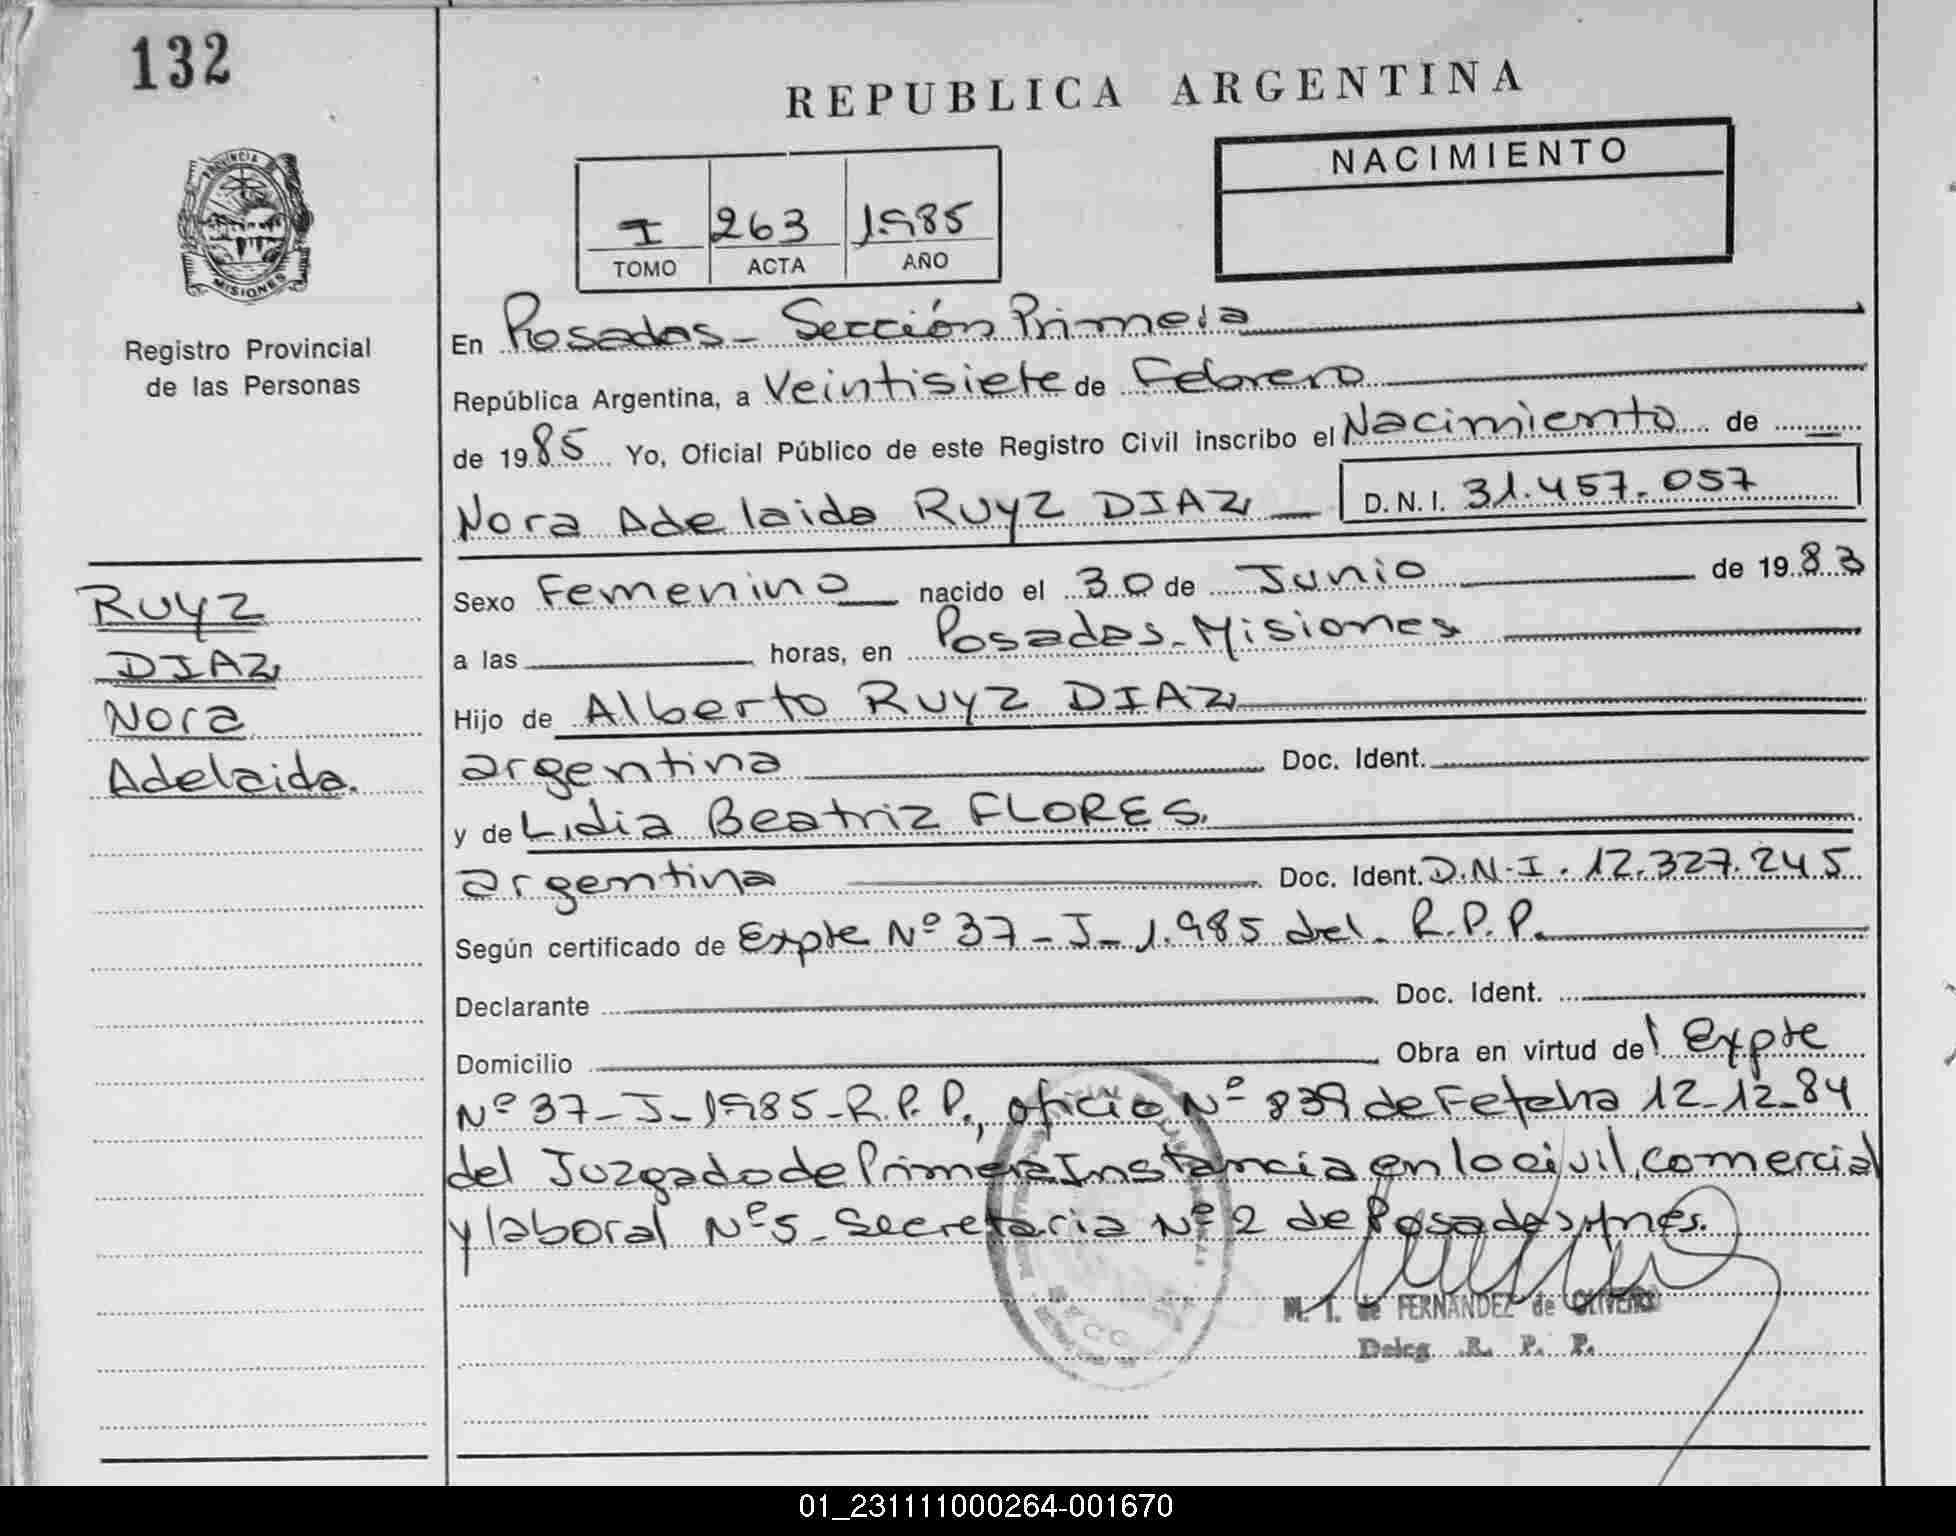 132
REPUBLICA ARGENTINA
NACIMIENTO
I 263 1.985
TOMO ACTA AÑO
PROVINCIA DE
MISIONES
Registro Provincial
de las Personas
En Posadas - Sección Primera
República Argentina, a Veintisiete de Febrero
de 1985 Yo, Oficial Público de este Registro Civil inscribo el Nacimiento de
Nora Adelaida RUYZ DIAZ D.N.I. 31.457.057
RUYZ
DIAZ
Nora
Adelaida.
Sexo Femenino nacido el 30 de Junio de 1983
a las horas, en Posadas - Misiones
Hijo de Alberto RUYZ DIAZ
argentina Doc. Ident.
y de Lidia Beatriz FLORES.
argentina Doc. Ident. D.N.I. 12.327.245
Según certificado de Expte Nº 37-J-1.985 del R.P.P.
Declarante Doc. Ident.
Domicilio Obra en virtud del Expte
Nº 37-J-1985-R.P.P., oficio Nº 839 de Fetcha 12-12-84
del Juzgado de Primera Instancia en lo civil, comercial
y laboral Nº 5 - Secretaria Nº 2 de Posadas, Mnes.
M. I. de FERNANDEZ de OLIVERA
Deleg. R. P. P.
01_231111000264-001670